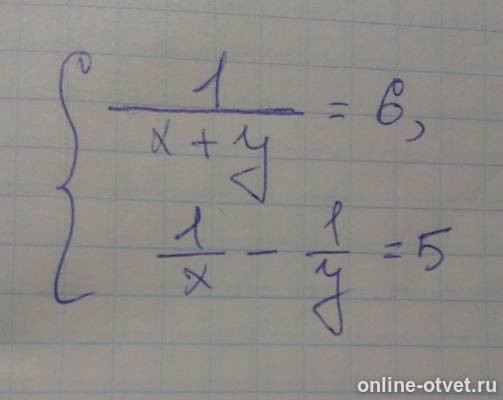 { 1/(x + y) = 6,
1/x - 1/y = 5
online-otvet.ru